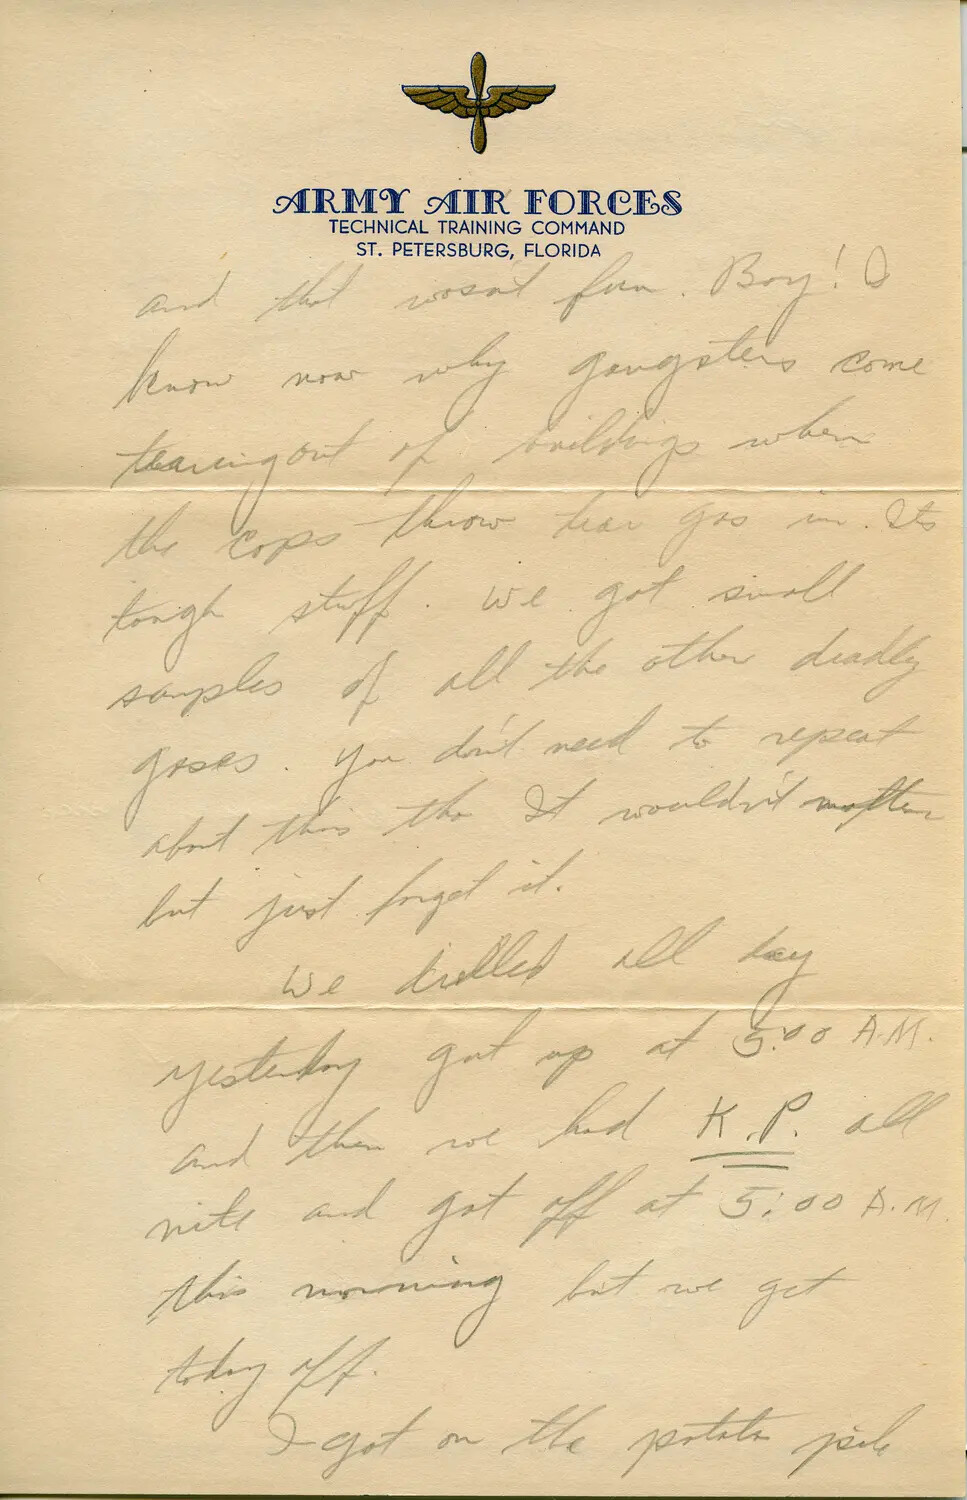 ARMY AIR FORCES
TECHNICAL TRAINING COMMAND
ST. PETERSBURG, FLORIDA
and that wasn't fun. Boy! I
know now why gangsters come
tearing out of buildings when
the cops throw tear gas in. Its
tough stuff. We got small
samples of all the other deadly
gases. You don't need to repeat
about this tho It wouldn't matter
but just forget it.
We drilled all day
yesterday got up at 5:00 A.M.
and then we had K.P. all
nite and got off at 5:00 A.M.
this morning but we get
today off.
I got on the potato pile